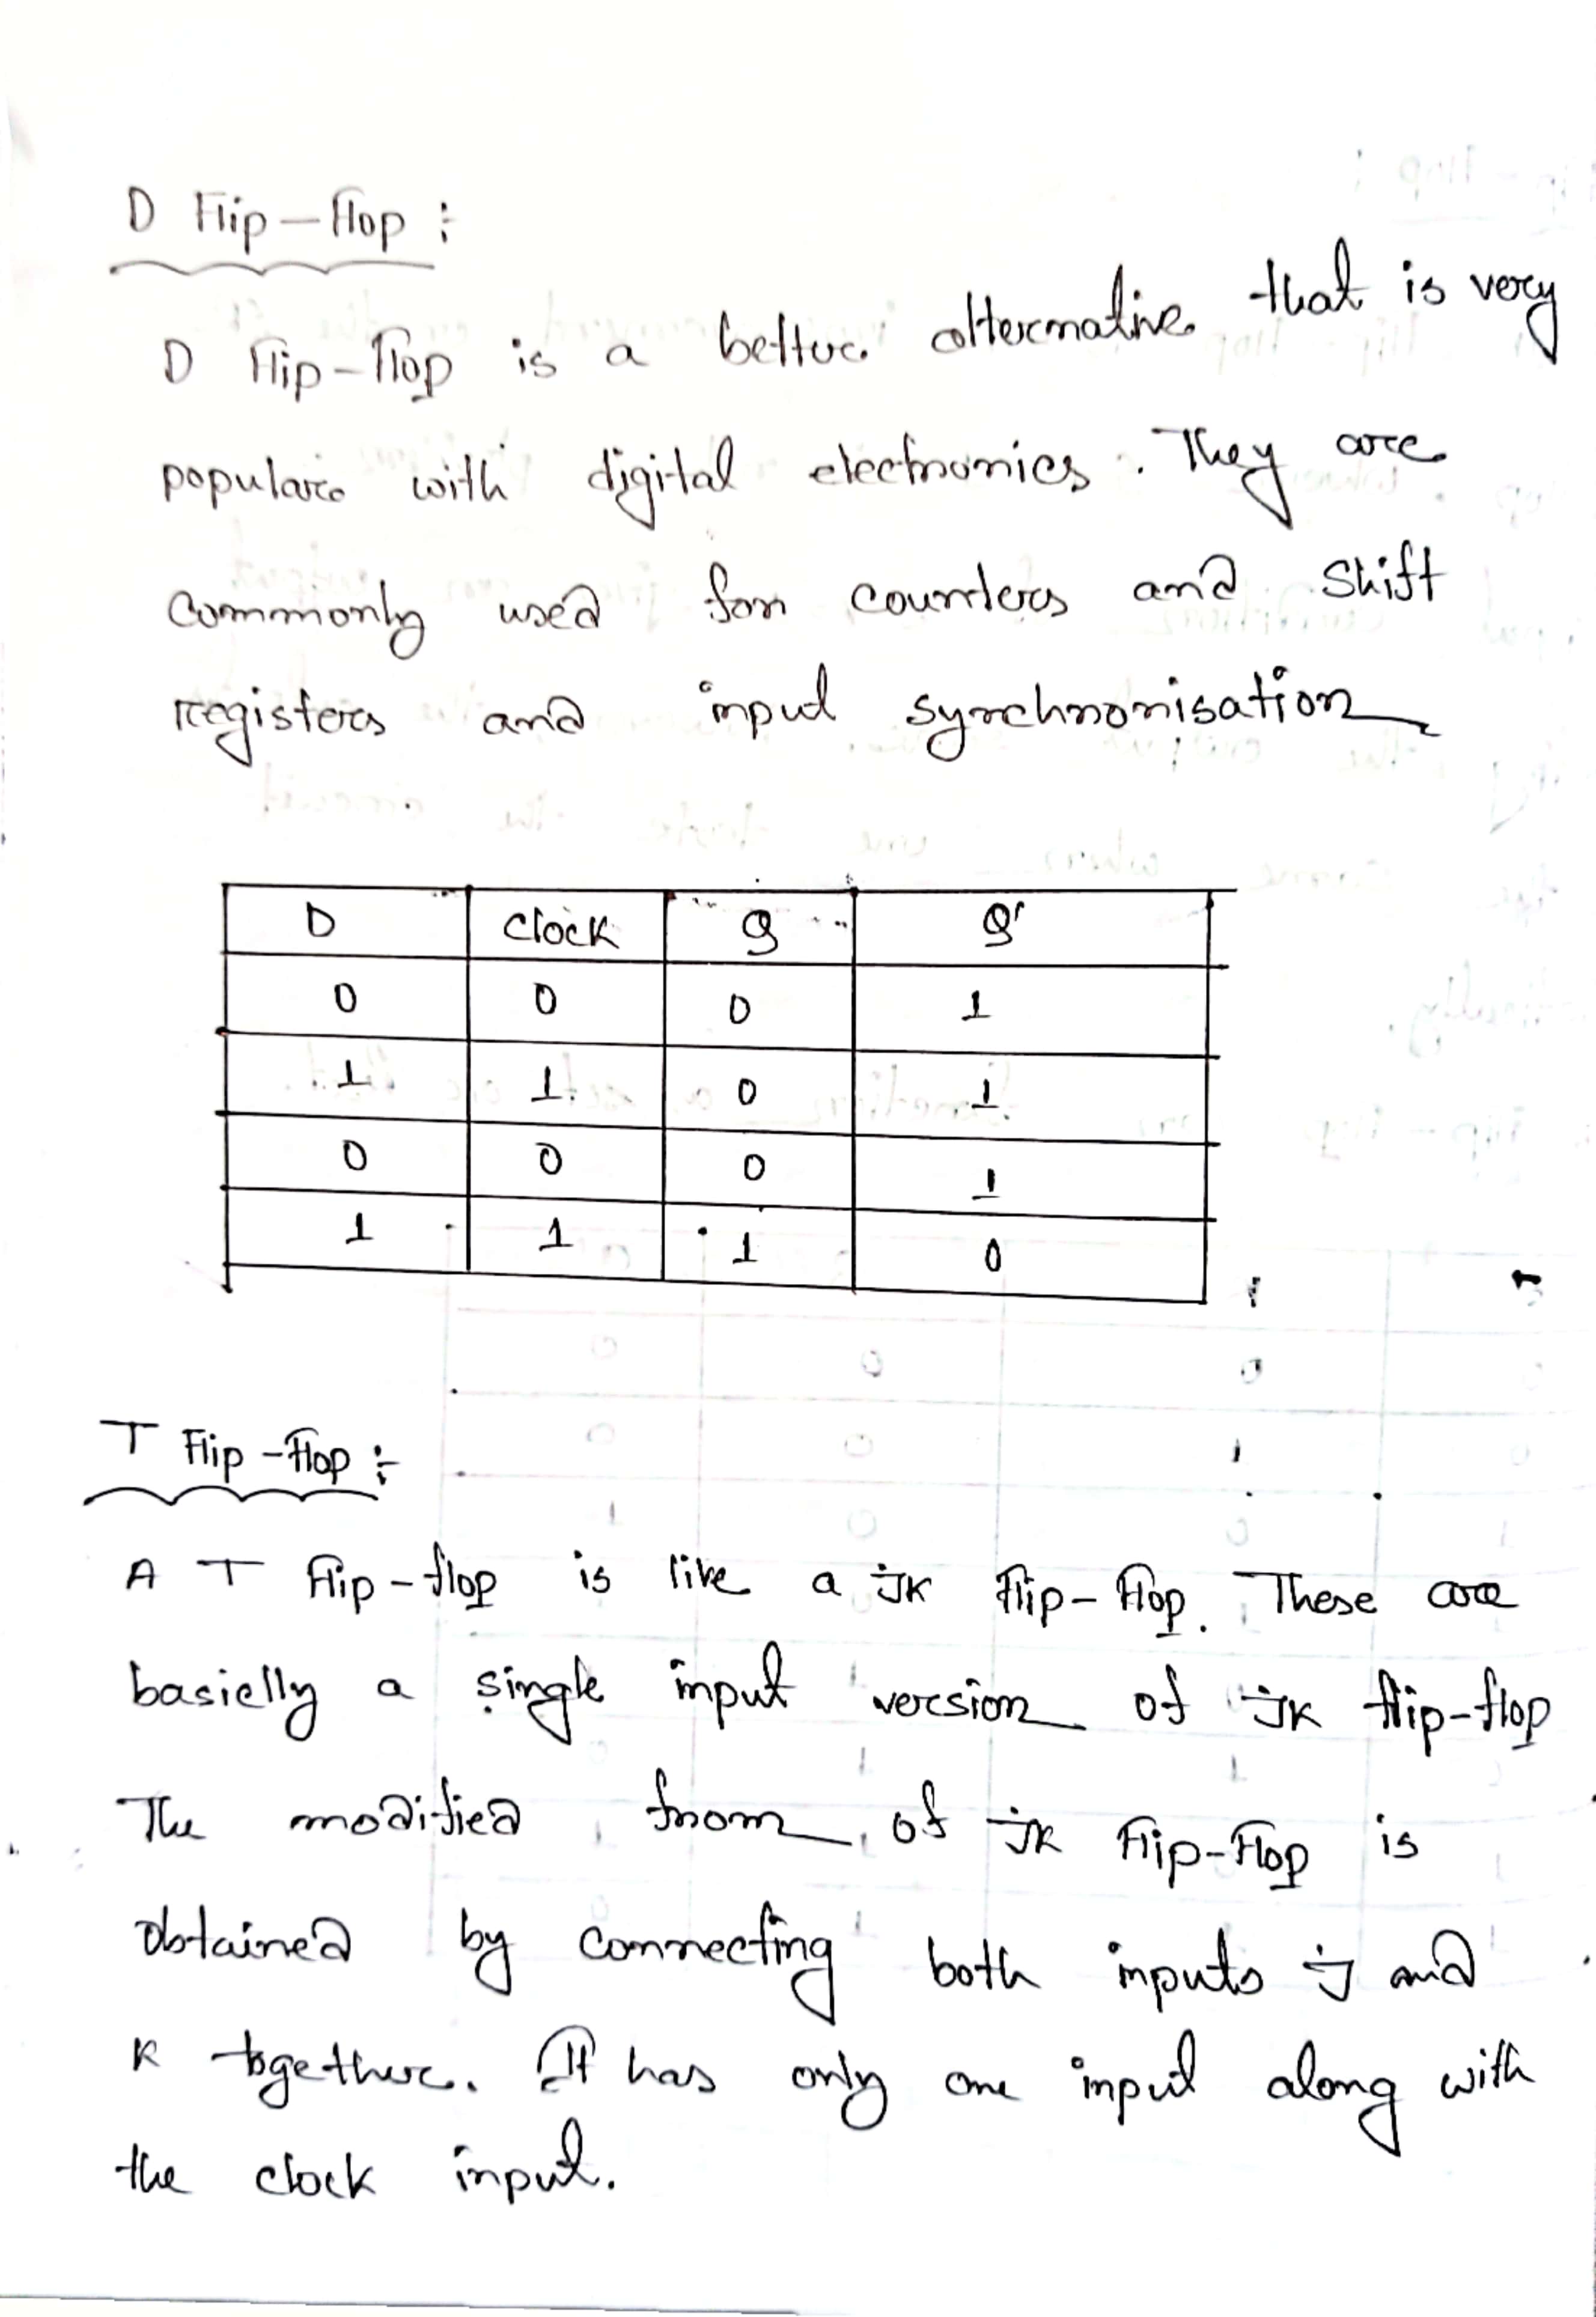 D Flip-flop :
D Flip-flop is a better alternative that is very
popular with digital electronics. They are
commonly used for counters and shift
registers and input synchronisation
D clock Q Q'
0 0 0 1
1 1 0 1
0 0 0 1
1 1 1 0
T Flip-flop :-
A T flip-flop is like a JK flip-flop. These are
basielly a single input version of JK flip-flop
The modified from of JK flip-flop is
obtained by connecting both inputs J and
K together. It has only one input along with
the clock input.